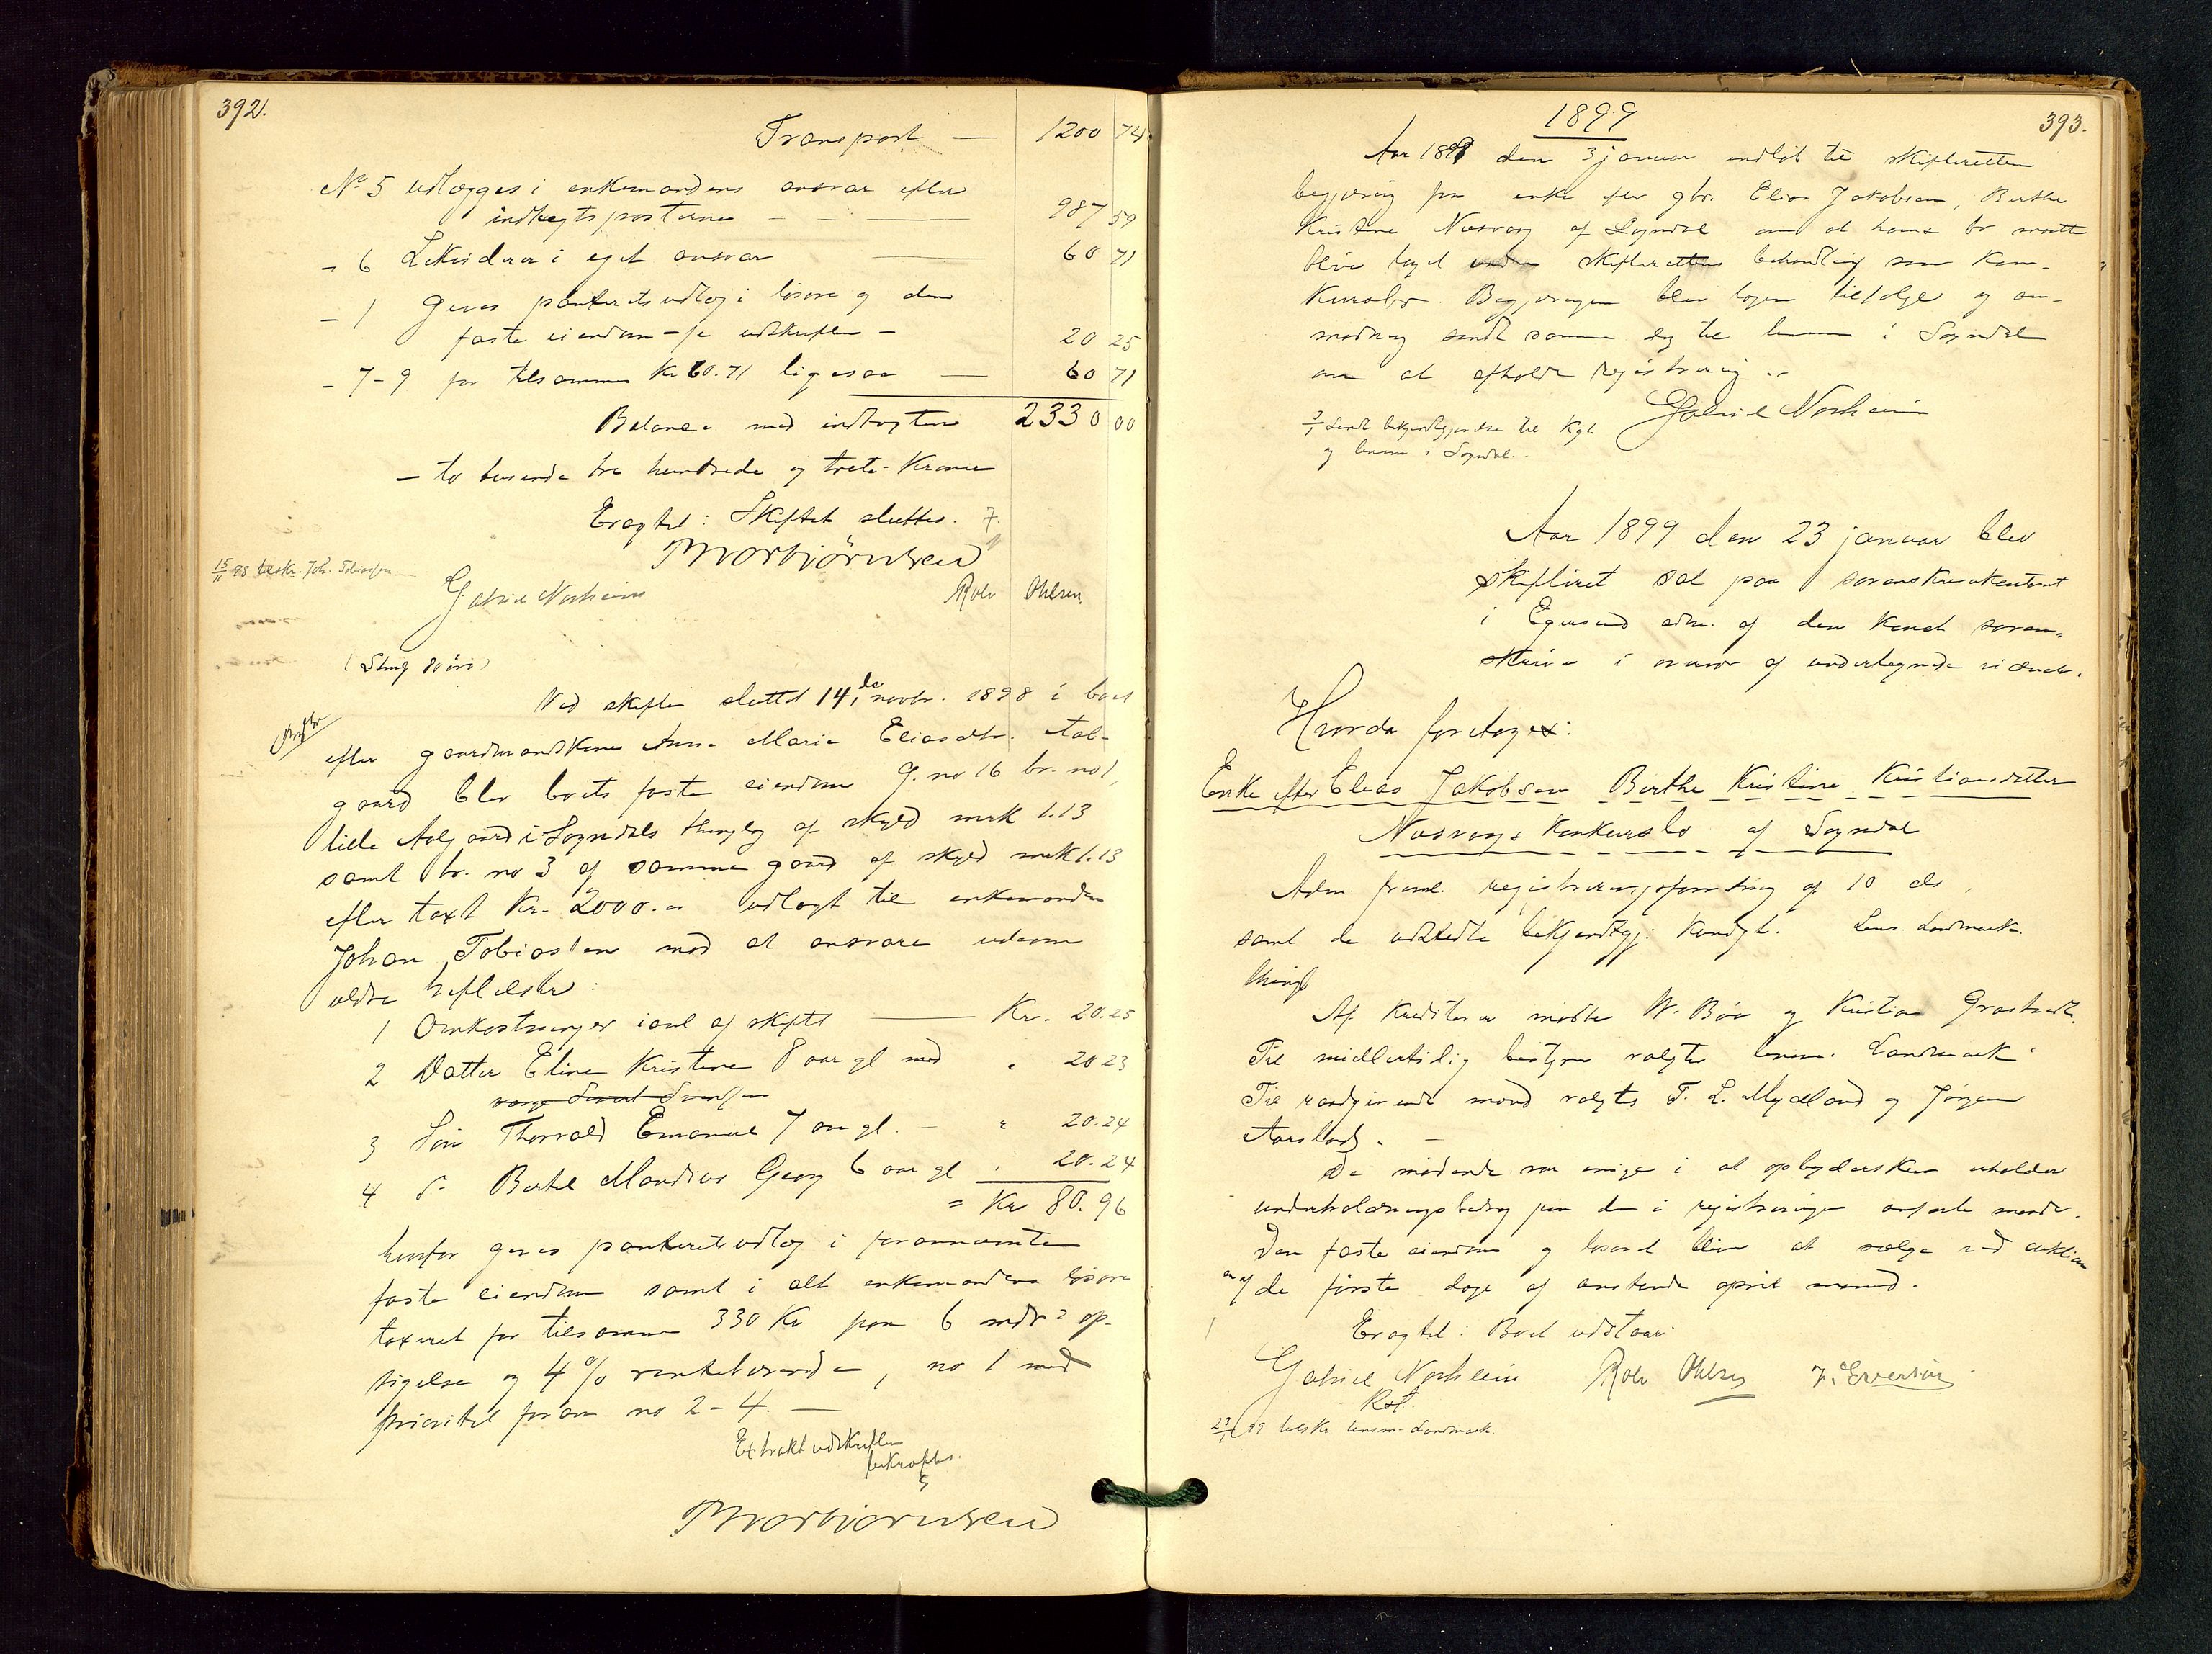 392.
Transport — 1200 74
No 5 udlægges i enkemandens ansvar efter
indtægtsposterne — 987 59
" 6 Likviderer i eget ansvar — 60 71
" 1 Gives panteretsudlæg i løsøre og den
faste eiendom - se udskriften - 20 25
" 7-9 for tilsammen Kr 60.71 ligesaa — 60 71
Balance med indtægten 2330 00
— to tusende tre hundrede og treti - Kroner
Eragtet: Skiftet sluttes.
Thorbjørnsen
15/11 98 tilskr. Joh. Tobiassen
Gabriel Norheim Rolv Ohlsen.
(Stmp 80 øre)
Ved skifte sluttet 14de novbr. 1898 i boet
efter gaardmandskone Anne Maria Eliasdtr. Aal-
gaard blev boets faste eiendom G. no 16 br. no 1,
lille Aalgaard i Sogndals thinglag af skyld mrk 1.13
samt br. no 3 af samme gaard af skyld mrk 1.13
efter taxt Kr. 2000.00 udlagt til enkemanden
Johan Tobiassen med at ansvare udenom
ældre heftelser:
1 Omkostninger i anl af skiftet — Kr. 20.25
2 Datter Eline Kristine 8 aar gl med " 20 23
3 Søn Thorvald Emanuel 7 aar gl. — " 20.24
4 do Bertel Mandius Georg 6 aar gl " 20.24
= Kr 80.96
hvorfor gives panteretsudlæg i forannævnte
faste eiendom samt i alt enkemandens løsøre
taxeret for tilsammen 330 Kr paa 6 mdrs op-
sigelse og 4% rentebærende, no 1 med
prioritet foran no 2-4. —
Extraktudskriften
bekræftes.
Thorbjørnsen
1899
393.
Aar 1899 den 3 januar indløb til skifteretten
begjæring fra enke efter gbr. Elias Jakobsen, Berthe
Kristine Nesvaag af Sogndal om at hans bo maatte
blive taget under skifterettens behandling som Kon-
kursbo. Begjæringen blev tagen tilfølge og an-
modning sendt samme dag til lensm i Sogndal
om at afholde registrering. "
Gabriel Norheim
3/1 Sendt bekjendtgjørelse til Kgt.
og lensm i Sogndal.
Aar 1899 den 23 januar blev
skifteret sat paa sorenskriverkontoret
i Egersund adm. af den Konst soren-
skriver i overvær af undertegnede vidner.
Hvorda foretoges:
Enke efter Elias Jakobsen Berthe Kristine Kristiansdatter
Nesvaags Konkursbo af Sogndal
Adm. freml. registreringsforretning af 10 ds,
samt de udstedte bekjendtgj: Kundgt. Lens. Landmark.
Af Kreditorer mødte W. Bøe og Kristian Grastveit.
Til midlertidig bestyrer valgte lensm. Landmark.
Til raadgivende mænd valgtes T. L. Mydland og Jørgen
Aarstad. —
De mødende var enige i at opbydersken erholder
underholdningsbidrag paa de i registreringen anførte maade.
Den faste eiendom og løsøret bliver at sælge ved auktion
en af de første dage af anstaaende april maaned.
Eragtet: Boet udstaar.
Gabriel Norheim Rolv Ohlsen J. Evertsen
Kst.
23/1 99 tilskr lensm. Landmark.